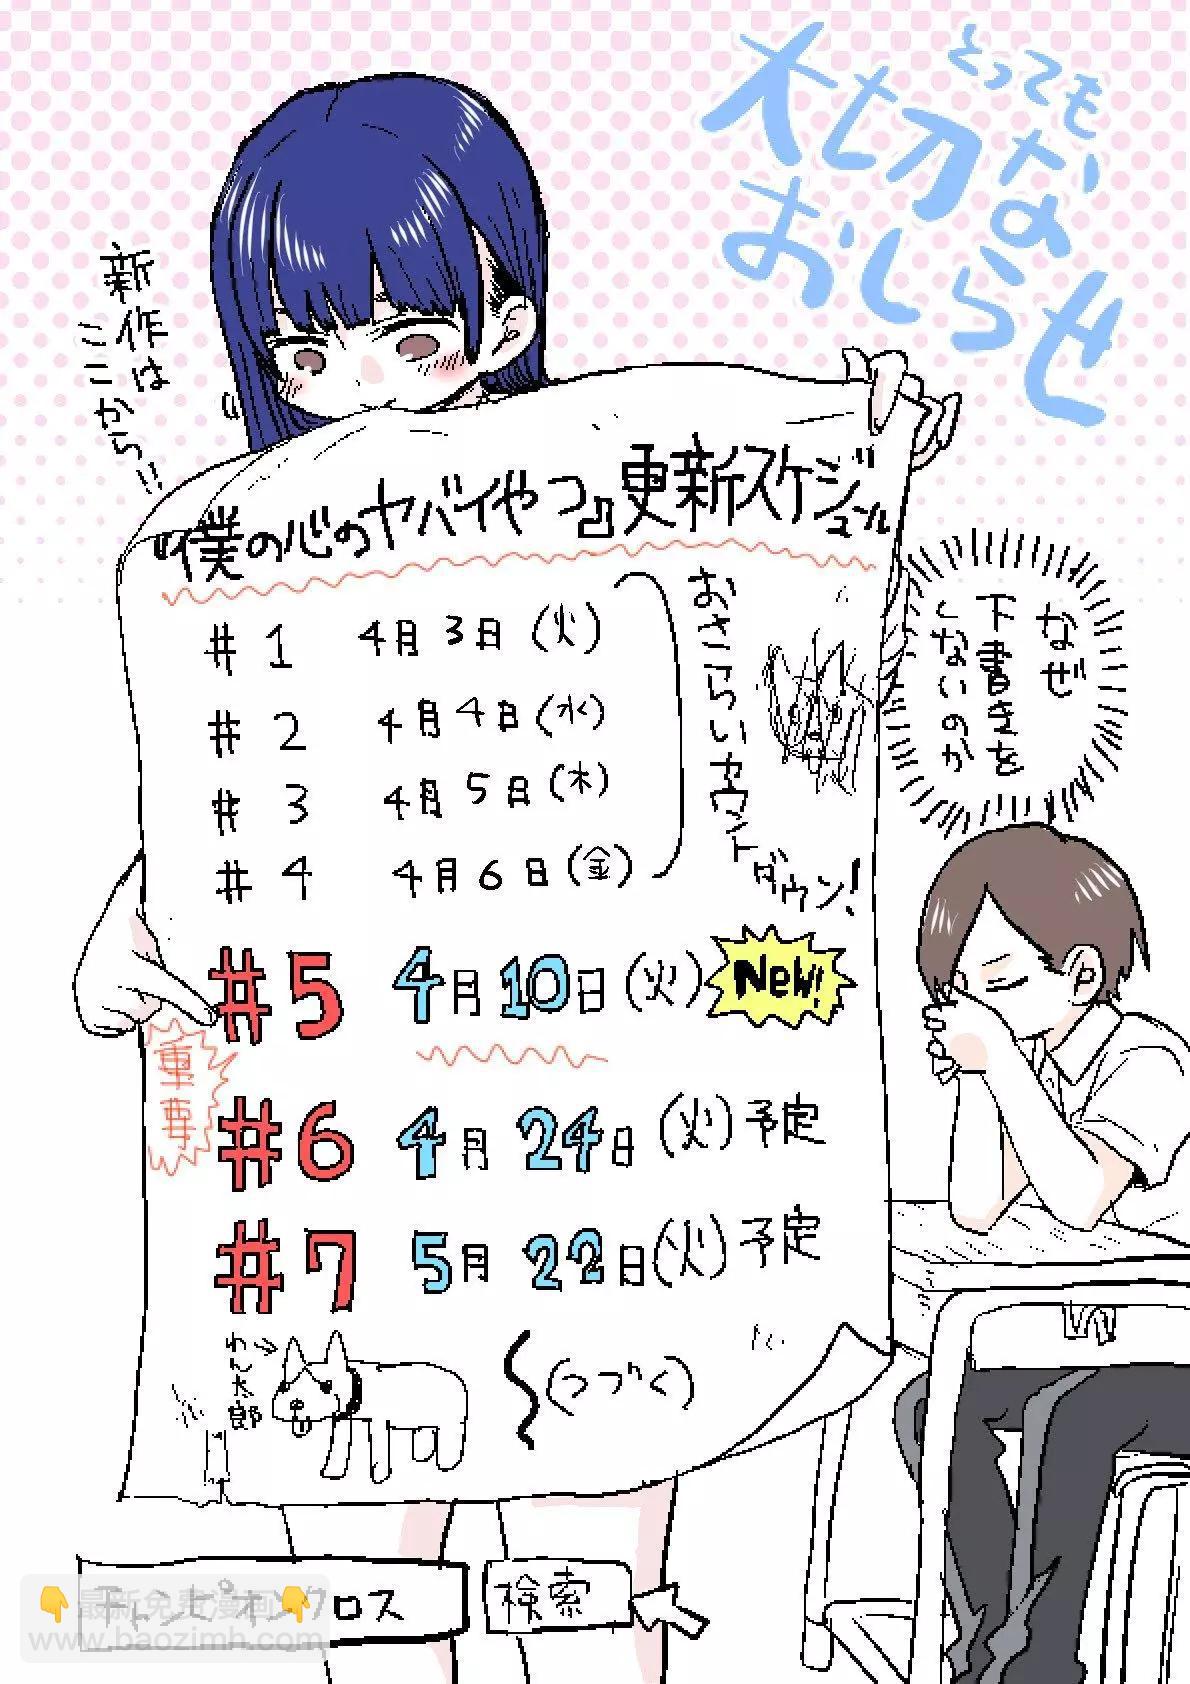 とっても
大切な
おしらせ
新作は
ここから!!
『僕の心のヤバイやつ』更新スケジュール
#1 4月3日(火)
#2 4月4日(水)
#3 4月5日(木)
#4 4月6日(金)
おさらいカウントダウン!
なぜ
下書きを
しないのか
#5 4月10日(火) New!
重要
#6 4月24日(火)予定
#7 5月22日(火)予定
わん太郎→
(つづく)
チャンピオンクロス
検索
👇最新免費漫画👇
www.baozimh.com